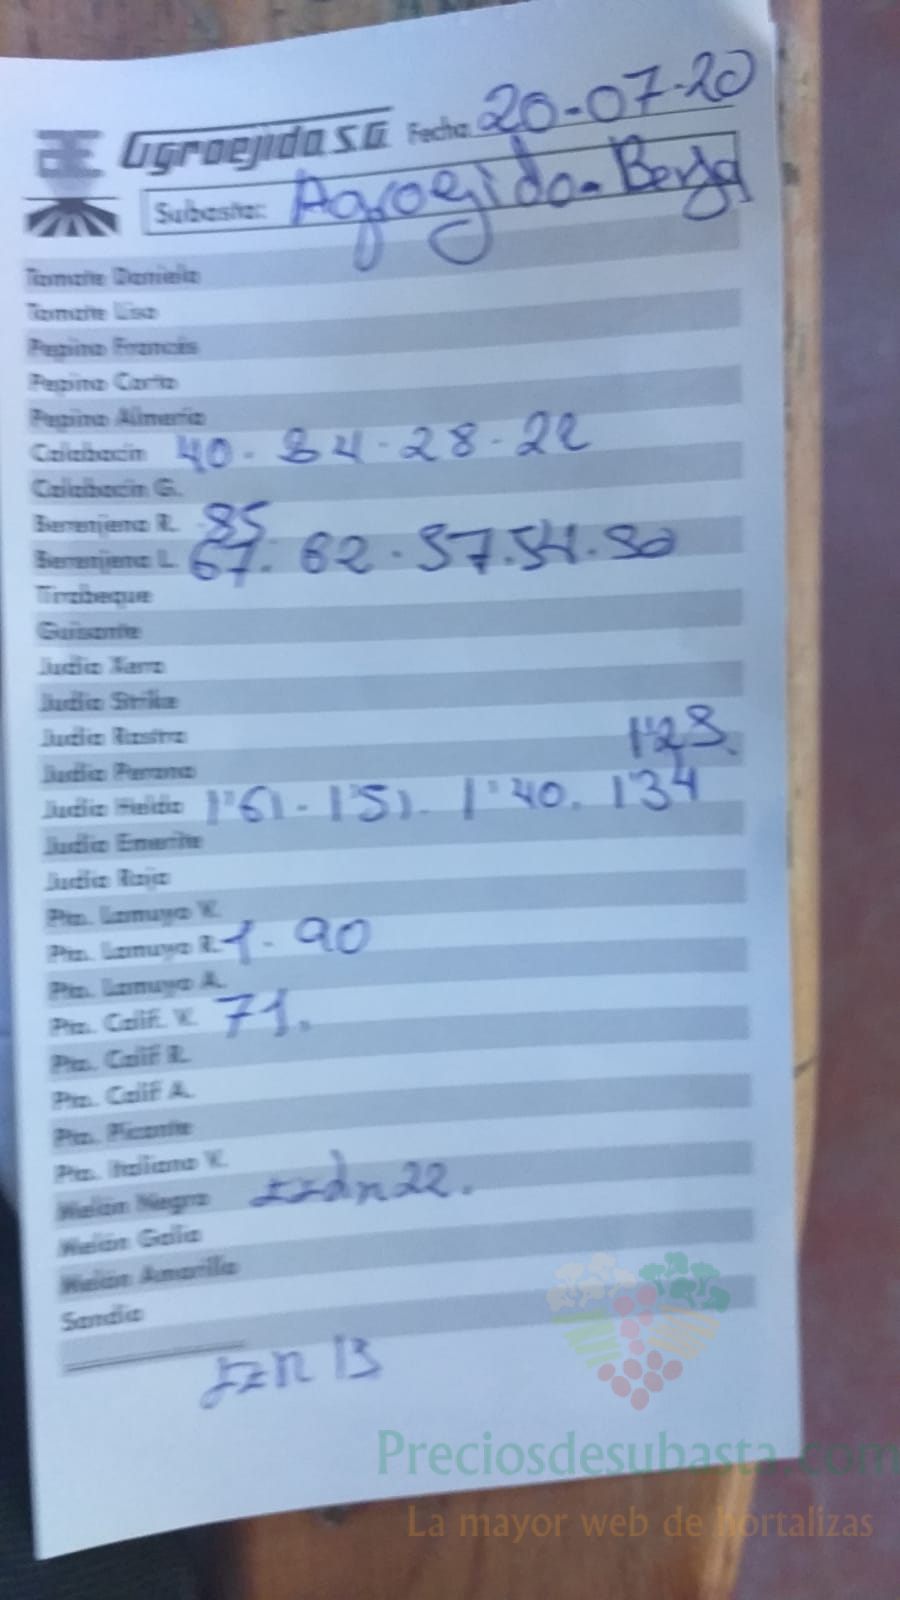 Agroejido S.A. Fecha 20-07-20
Subasta: Agroejido-Berja
Tomate Daniela
Tomate Liso
Pepino Francés
Pepino Corto
Pepino Almería
Calabacín 40-34-28-22
Calabacín G.
Berenjena R. 85
Berenjena L. 67. 62-57.54.50
Tirabeque
Guisante
Judía Xera
Judía Strike
Judía Rastra 1'23.
Judía Perona
Judía Helda 1'61-1'51-1'40. 1'34
Judía Emerite
Judía Roja
Pto. Lamuyo V.
Pto. Lamuyo R. 1-90
Pto. Lamuyo A.
Pto. Calif. V. 71.
Pto. Calif R.
Pto. Calif A.
Pto. Picante
Pto. Italiano V.
Melón Negro 22.
Melón Galia
Melón Amarillo
Sandía
13
Preciosdesubasta.com
La mayor web de hortalizas